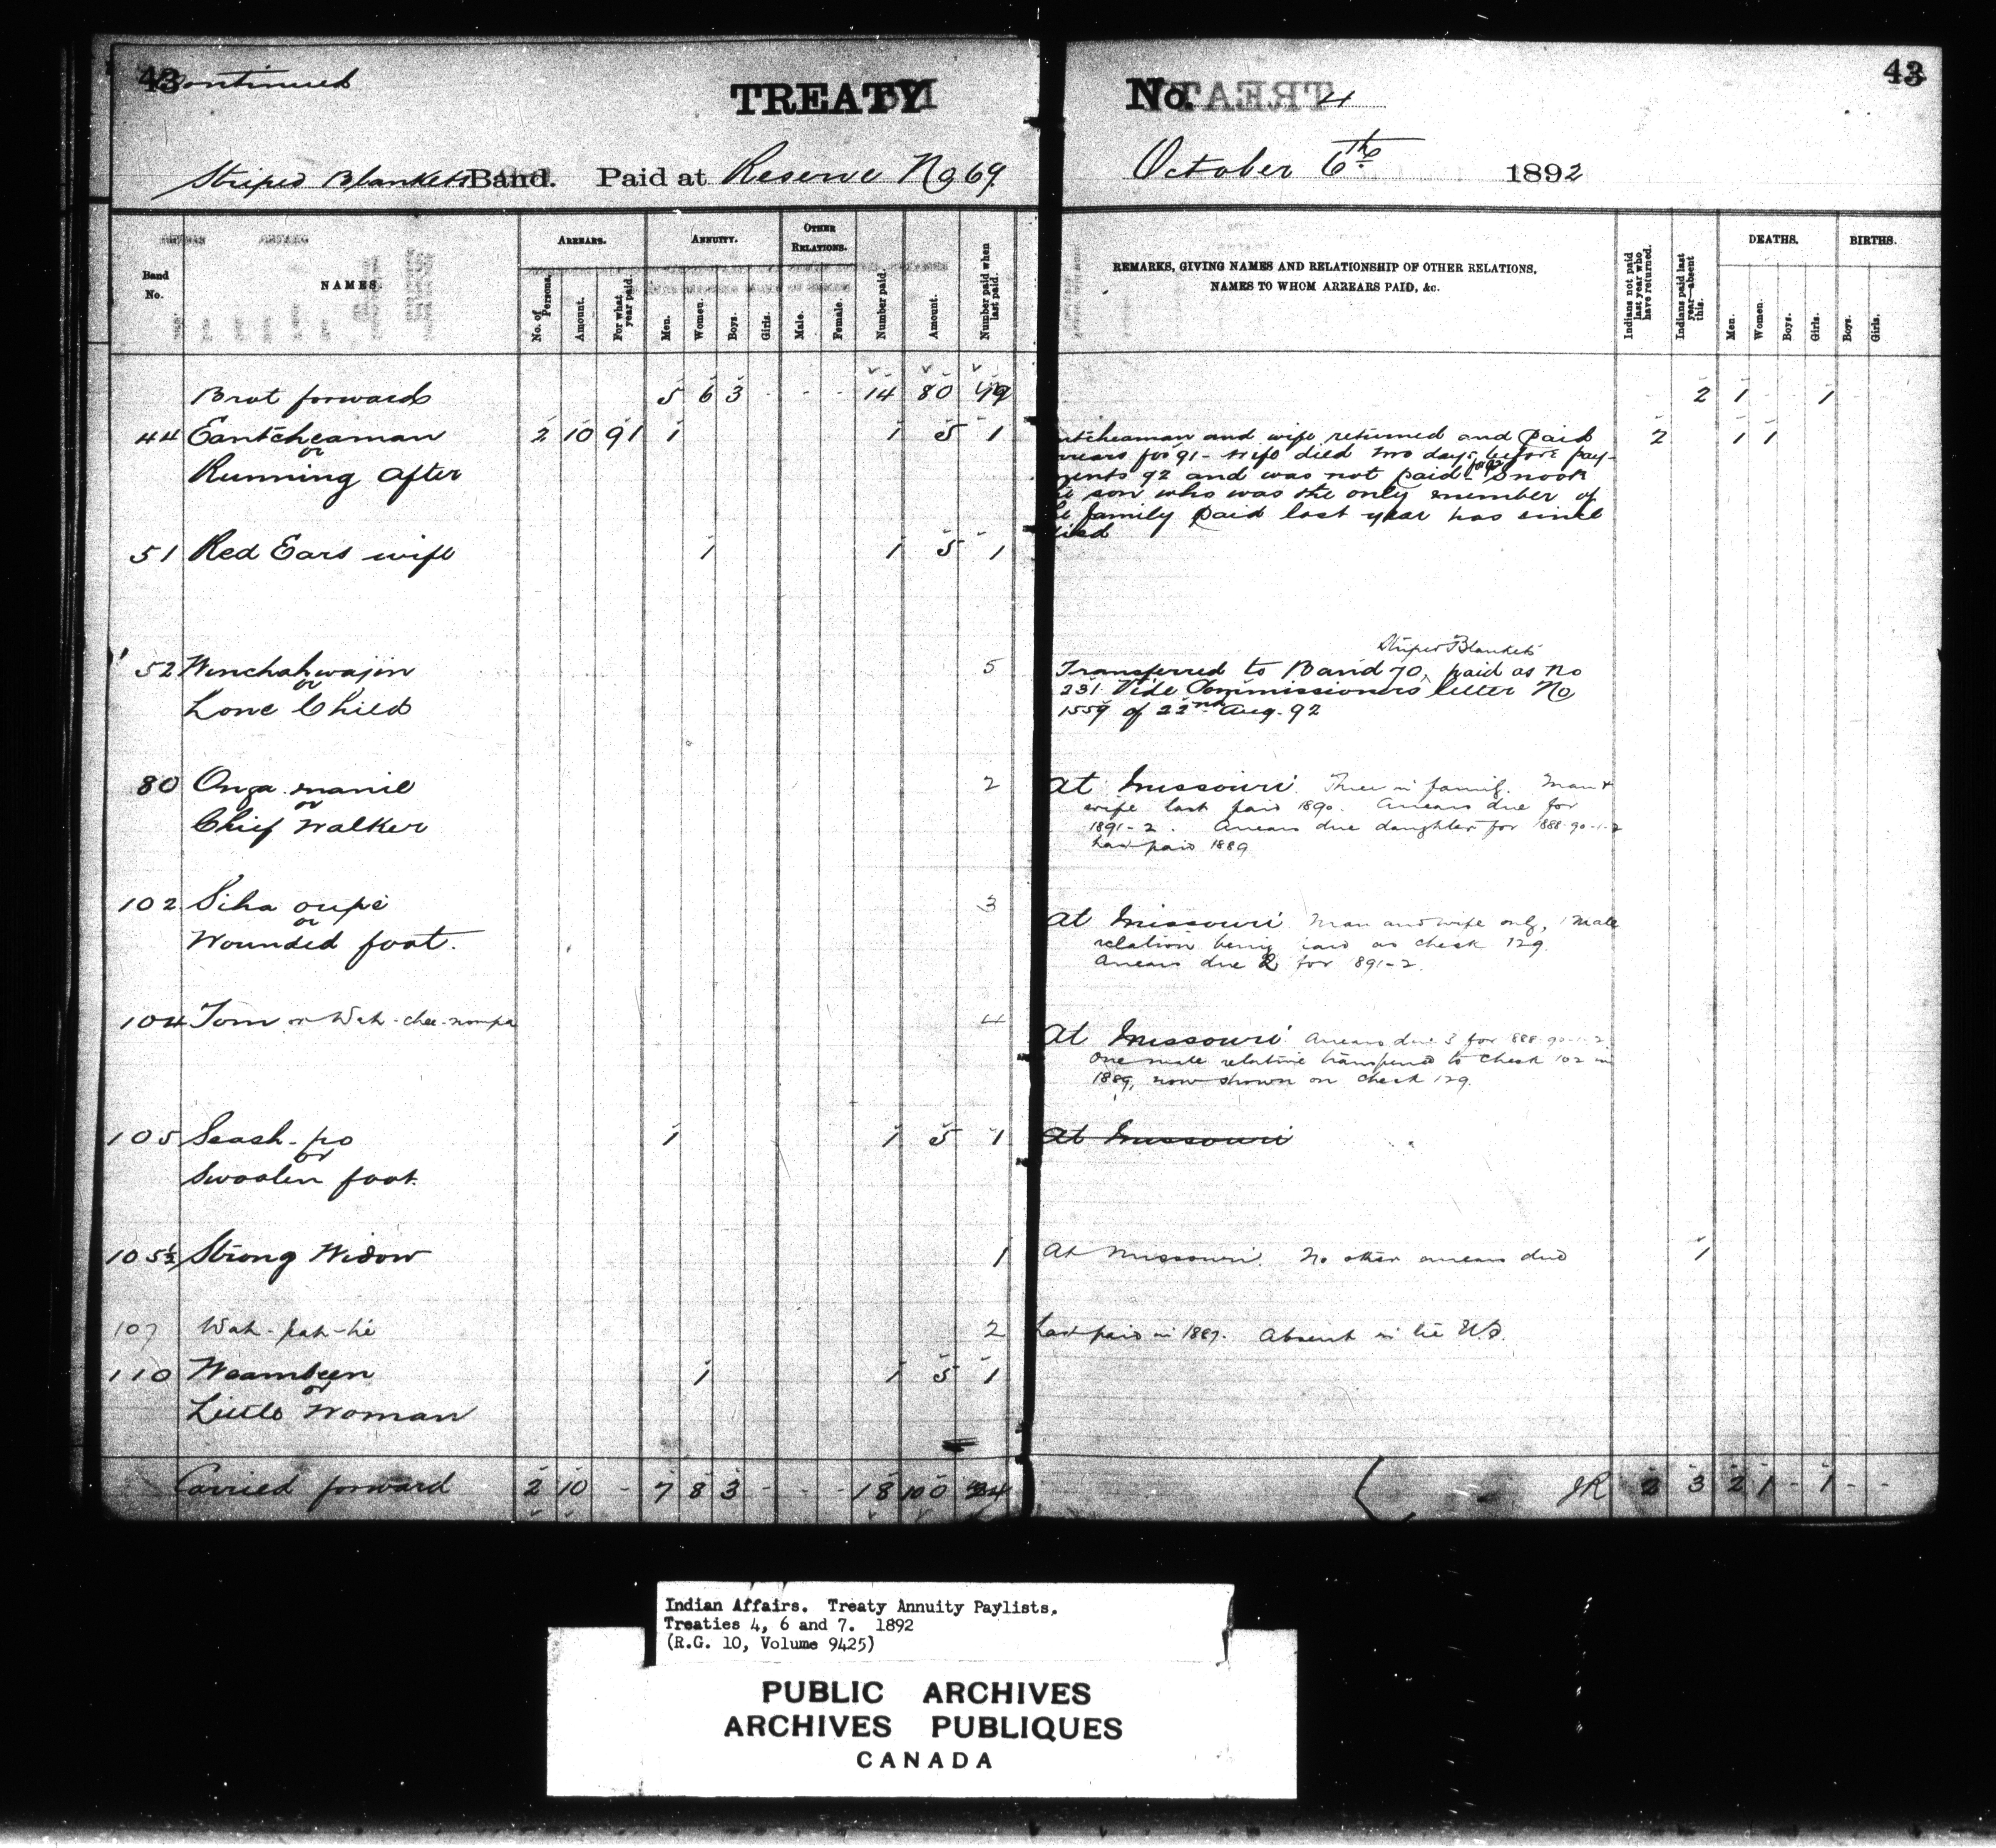 43 Continued
TREATY
No. 4
43
Striped Blankets Band. Paid at Reserve No 69.
October 6th 1892
Band No.
NAMES.
ARREARS.
No. of Persons.
Amount.
For what year paid.
ANNUITY.
Men.
Women.
Boys.
Girls.
OTHER RELATIONS.
Male.
Female.
Number paid.
Amount.
Number paid when last paid.
REMARKS, GIVING NAMES AND RELATIONSHIP OF OTHER RELATIONS,
NAMES TO WHOM ARREARS PAID, &c.
Indians not paid last year who have returned.
Indians paid last year—absent this.
DEATHS.
Men.
Women.
Boys.
Girls.
BIRTHS.
Boys.
Girls.
Brot forward 5 6 3 - - - 14 80 2 1 1
44 Eantcheaman 2 10 91 1 1 5 1 2 1 1
or
Running After
ntcheaman and wife returned and paid
rrears for 91 - wife died two days before pay-
ments 92 and was not paid for 92 - Snook
he son who was the only member of
he family paid last year has since
died
51 Red Ears wife 1 1 5 1
52 Winchahwajin 5
or
Lone Child
Striped Blankets
Transferred to Band 70, paid as No
231. Vide Commissioners letter No
1559 of 22nd Aug. 92
80 Onga manie 2
or
Chief Walker
At Missouri. Three in family. Man &
wife last paid 1890. Arrears due for
1891-2. Arrears due daughter for 1888-90-1-2
Last paid 1889
102 Siha oupi 3
or
Wounded foot.
At Missouri Man and wife only, 1 male
relation being paid as check 129.
Arrears due 2 for 1891-2.
104 Tom or Wah-chee-nompa 4
At Missouri Arrears due 3 for 888-90-1-2.
One male relative transferred to check 102 in
1889, now shown on check 129.
105 Seash-po 1 1 5 1 At Missouri
or
Swoolen foot.
105½ Strong Widow 1 At Missouri. No other arrears due 1
107 Wah-pah-hi 2 Last paid in 1887. Absent in the U.S.
110 Weambeen 1 1 5 1
or
Little Woman
Carried forward 2 10 - 7 8 3 - - - 18 100 34 JR 2 3 2 1 - 1 - -
Indian Affairs. Treaty Annuity Paylists.
Treaties 4, 6 and 7. 1892
(R.G. 10, Volume 9425)
PUBLIC ARCHIVES
ARCHIVES PUBLIQUES
CANADA